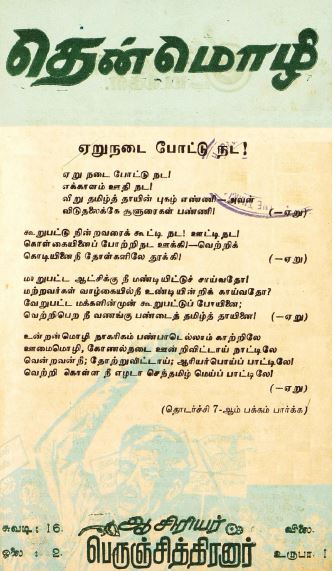 தென்மொழி
ஏறுநடை போட்டு நட!
ஏறு நடை போட்டு நட!
எக்காளம் ஊதி நட!
வீறு தமிழ்த் தாயின் புகழ் எண்ணி—அவள்
விடுதலைக்கே சூளுரைகள் பண்ணி! (—ஏறு)
கூறுபட்டு நின்றவரைக் கூட்டி நட! ஊட்டி நட!
கொள்கையினைப் போற்றிநட ஊக்கி!—வெற்றிக்
கொடியினை நீ தோள்களிலே தூக்கி! (—ஏறு)
மாறுபட்ட ஆட்சிக்கு நீ மண்டியிட்டுச் சாய்வதோ!
மற்றவர்கள் வாழ்கையில்நீ உண்டியின்றிக் காய்வதோ?
வேறுபட்ட மக்களின்முன் கூறுபட்டுப் போயினை;
வெற்றிபெற நீ வணங்கு பண்டைத் தமிழ்த் தாயினை! (—ஏறு)
உன்றன்மொழி நாகரிகம் பண்பாடெல்லாம் காற்றிலே
ஊமைமொழி, கோணல்நடை ஊன்றிவிட்டாய் நாட்டிலே
வென்றவன்நீ; தோற்றுவிட்டாய்; ஆரியர்பொய்ப் பாட்டிலே!
வெற்றி கொள்ள நீ எழடா செந்தமிழ் மெய்ப் பாட்டிலே!
(—ஏறு)
(தொடர்ச்சி 7-ஆம் பக்கம் பார்க்க)
சுவடி: 16 ஆசிரியர் விலை
ஓலை: 2 பெருஞ்சித்திரனார் உருபா: 1